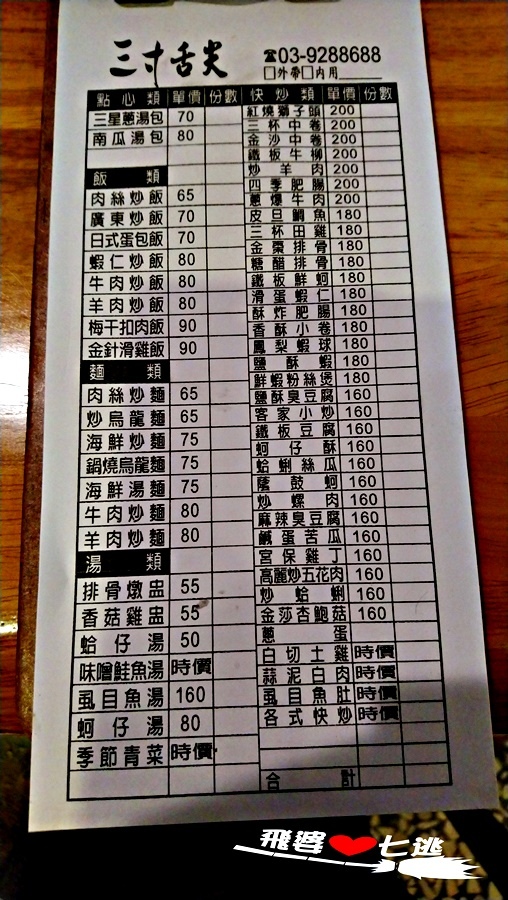 三寸舌尖
☎03-9288688
□外帶□內用
點心類 單價 份數
三星蔥湯包 70
南瓜湯包 80
飯類
肉絲炒飯 65
廣東炒飯 70
日式蛋包飯 70
蝦仁炒飯 80
牛肉炒飯 80
羊肉炒飯 80
梅干扣肉飯 90
金針滑雞飯 90
麵類
肉絲炒麵 65
炒烏龍麵 65
海鮮炒麵 75
鍋燒烏龍麵 75
海鮮湯麵 75
牛肉炒麵 80
羊肉炒麵 80
湯類
排骨燉盅 55
香菇雞盅 55
蛤仔湯 50
味噌鮭魚湯 時價
虱目魚湯 160
蚵仔湯 80
季節青菜 時價
快炒類 單價 份數
紅燒獅子頭 200
三杯中卷 200
金沙中卷 200
鐵板牛柳 200
炒羊肉 200
四季肥腸 200
蔥爆牛肉 200
皮旦鯛魚 180
三杯田雞 180
金棗排骨 180
糖醋排骨 180
鐵板鮮蚵 180
滑蛋蝦仁 180
酥炸肥腸 180
香酥小卷 180
鳳梨蝦球 180
鹽酥蝦 180
鮮蝦粉絲煲 180
鹽酥臭豆腐 160
客家小炒 160
鐵板豆腐 160
蚵仔酥 160
蛤蜊絲瓜 160
蔭鼓蚵 160
炒螺肉 160
麻辣臭豆腐 160
鹹蛋苦瓜 160
宮保雞丁 160
高麗炒五花肉 160
炒蛤蜊 160
金莎杏鮑菇 160
蔥蛋
白切土雞 時價
蒜泥白肉 時價
虱目魚肚 時價
各式快炒 時價
合計
飛婆❤七逃